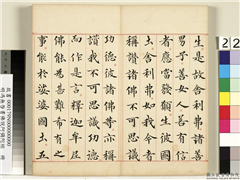 生是故舍利弗諸善
男子善女人若有信
者應當發願生彼國
土舍利弗如我今者
稱讚諸佛不可思議
功德彼諸佛等亦稱
讚我不可思議功德
而作是言釋迦牟尼
佛能為甚難希有之
事能於娑婆國土五